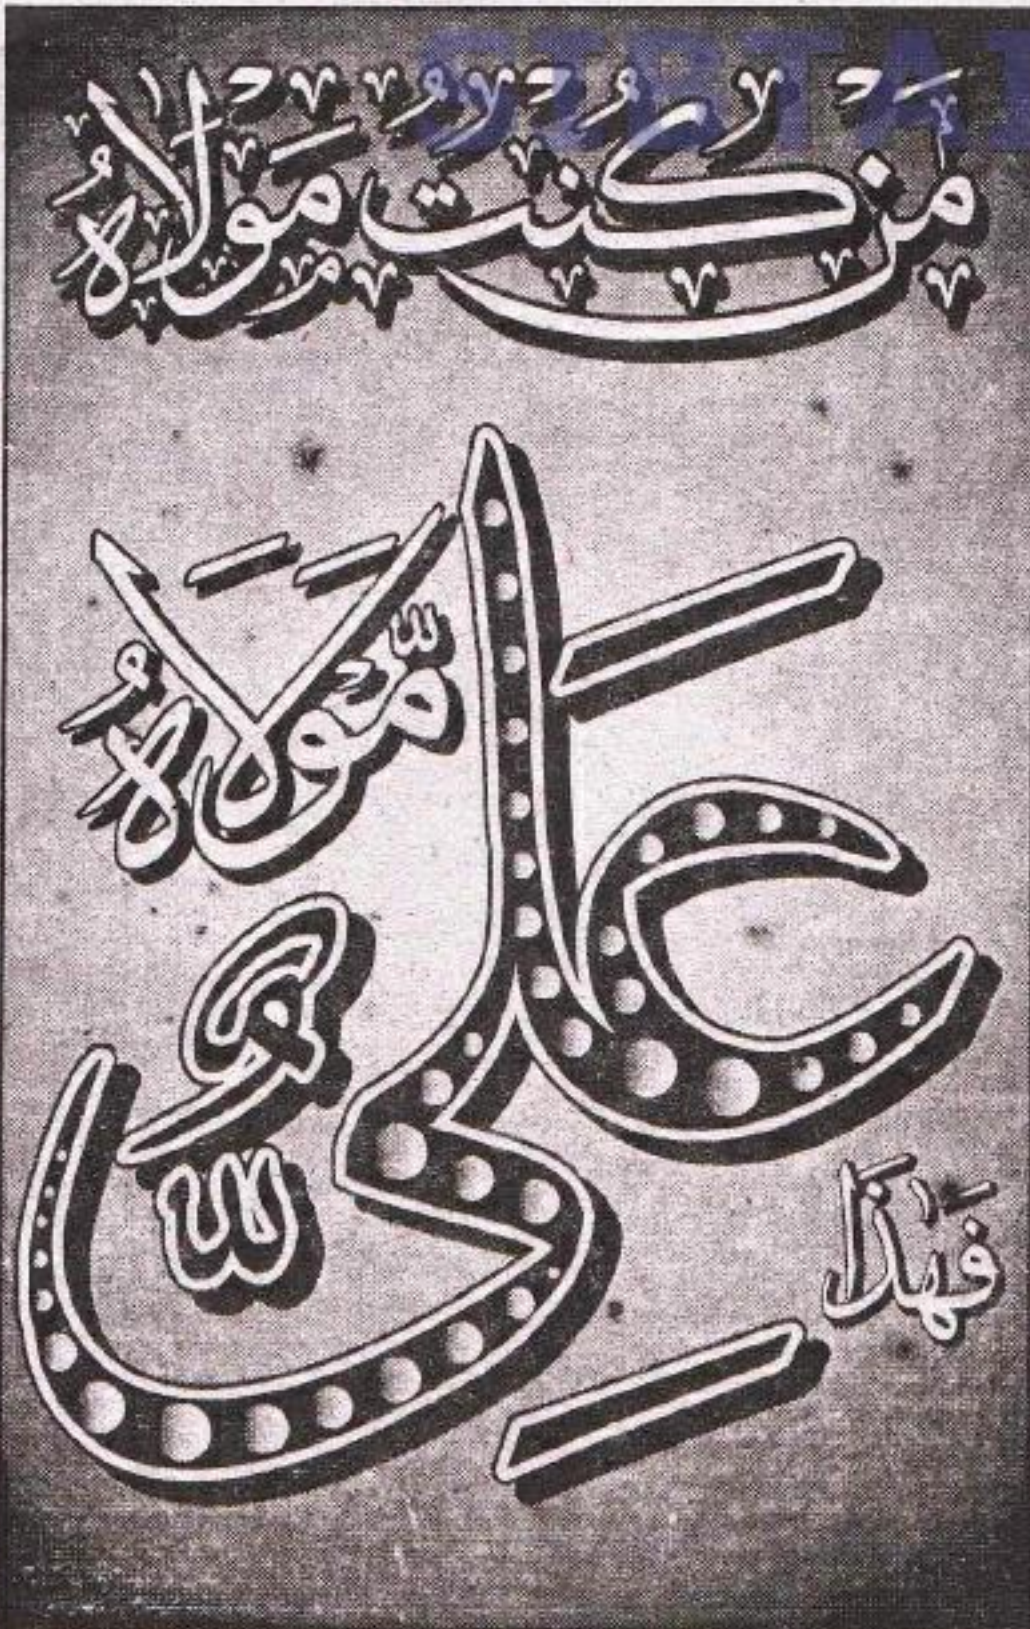 SIBTAI
مَنْ كُنْتُ مَوْلَاهُ
فَهٰذَا عَلِیٌّ مَّوْلَاهُ